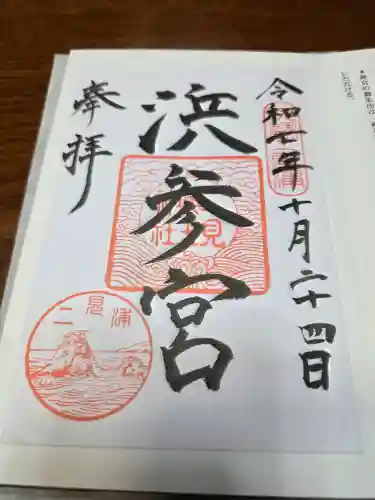 令和七年十月二十四日
浜参宮
奉拝
二見浦